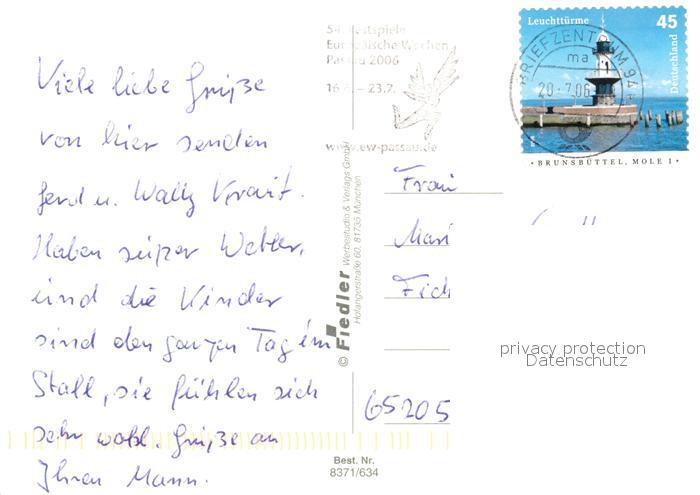 Viele liebe Grüße
von hier senden
Gerd u. Wally
Haben super Wetter,
und die Kinder
sind den ganzen Tag im
Stall, sie fühlen sich
sehr wohl. Grüße an
Ihren Mann.
54. Festspiele
Europäische Wochen
Passau 2006
16.6. – 23.7.
www.ew-passau.de
Leuchttürme 45
Deutschland
BRIEFZENTRUM 94
ma
20.-7.06
• BRUNSBÜTTEL, MOLE 1 •
Frau
Mari
65205
© Fiedler Werbestudio & Verlags GmbH
Hofangerstraße 60, 81735 München
privacy protection
Datenschutz
Best. Nr.
8371/634